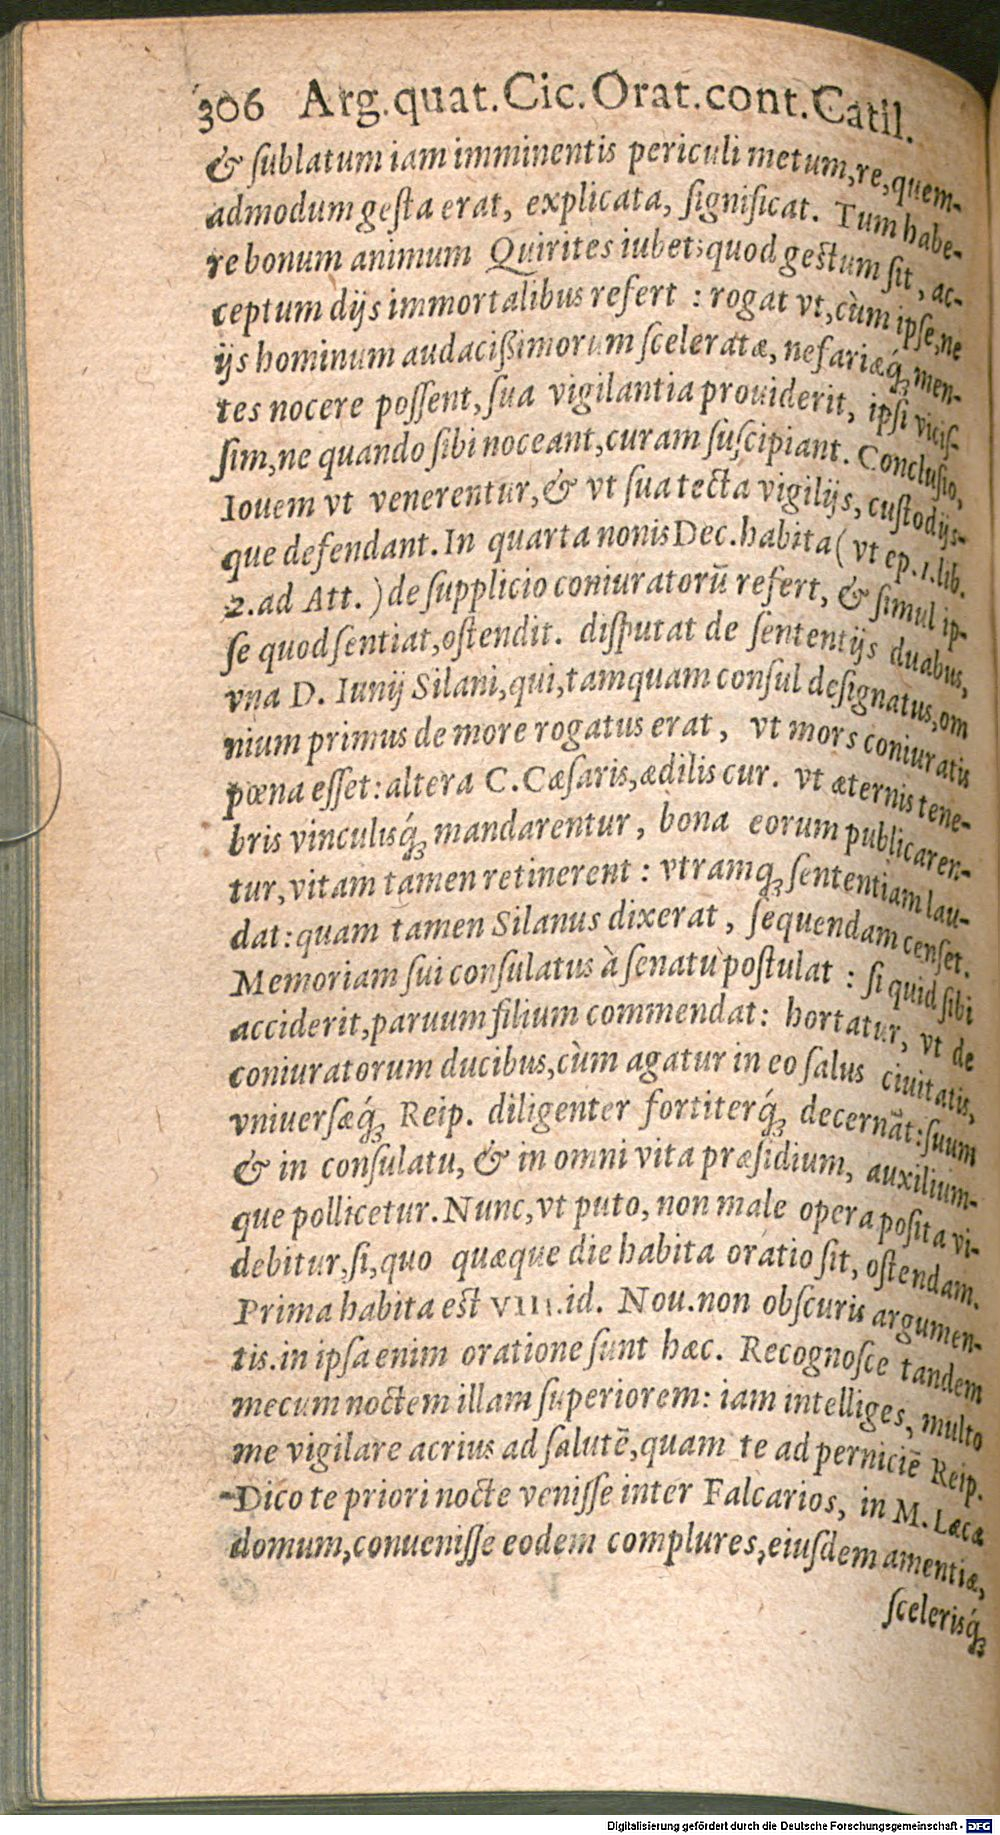 306 Arg.quat.Cic.Orat.cont.Catil.
& ſublatum iam imminentis periculi metum,re,quem-
admodum geſta erat, explicata, ſignificat. Tum habe-
re bonum animum Quirites iubet;quod geſtum ſit, ac-
ceptum dijs immortalibus refert : rogat vt,cùm ipſe,ne
ijs hominum audacißimorum ſceleratæ, nefariæq́; men-
tes nocere poſſent,ſua vigilantia prouiderit, ipſi viciſ-
ſim,ne quando ſibi noceant,curam ſuſcipiant. Concluſio,
Iouem vt venerentur,& vt ſua tecta vigilijs, cuſtodijs-
que defendant. In quarta nonis Dec.habita ( vt ep.1.lib.
2.ad Att. ) de ſupplicio coniuratorū refert, & ſimul ip-
ſe quod ſentiat,oſtendit. diſputat de ſententijs duabus,
vna D. Iunij Silani,qui,tamquam conſul deſignatus,om
nium primus de more rogatus erat, vt mors coniuratis
pœna eſſet: altera C.Cæſaris,ædilis cur. vt æternis tene-
bris vinculisq́; mandarentur, bona eorum publicaren-
tur,vitam tamen retinerent : vtramq; ſententiam lau-
dat:quam tamen Silanus dixerat, ſequendam cenſet.
Memoriam ſui conſulatus à ſenatu poſtulat : ſi quid ſibi
acciderit,paruum filium commendat: hortatur, vt de
coniuratorum ducibus,cùm agatur in eo ſalus ciuitatis,
vniuerſæq́; Reip. diligenter fortiterq́; decernāt:ſuum
& in conſulatu, & in omni vita præſidium, auxilium-
que pollicetur. Nunc,vt puto, non male opera poſita vi-
debitur,ſi,quo quæque die habita oratio ſit, oſtendam.
Prima habita eſt VIII.id. Nou.non obſcuris argumen-
tis.in ipſa enim oratione ſunt hæc. Recognoſce tandem
mecum noctem illam ſuperiorem: iam intelliges, multo
me vigilare acrius ad ſalutē,quam te ad perniciē Reip.
Dico te priori nocte veniſſe inter Falcarios, in M. Læcæ
domum,conueniſſe eodem complures,eiuſdem amentiæ,
ſcelerisq́;
Digitalisierung gefördert durch die Deutsche Forschungsgemeinschaft - DFG